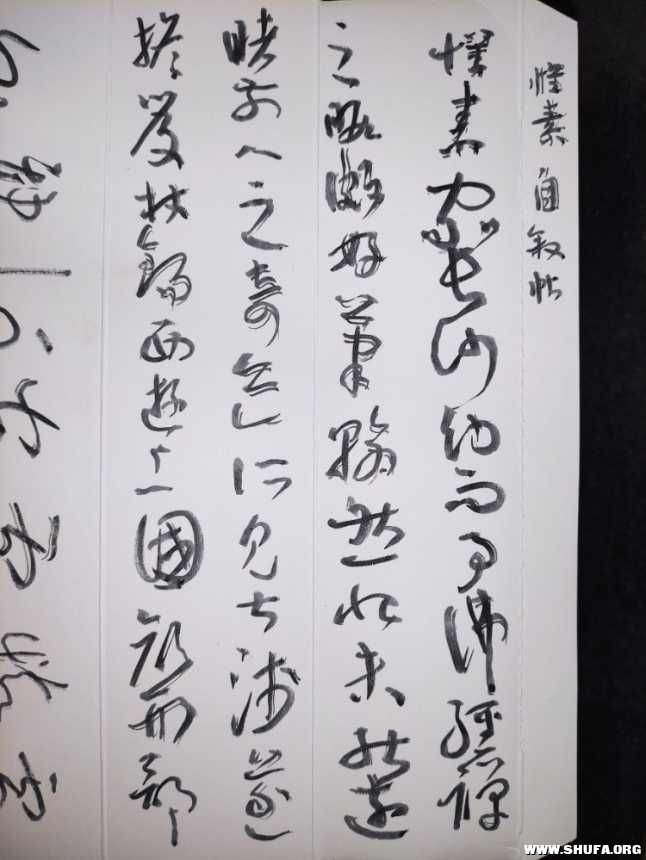 懷素自叙帖
懷素家長沙幼而事佛經禪
之暇頗好筆翰然恨未能遠
睹前人之奇迹所見甚淺遂
擔笈杖錫西遊上國顏刑部
WWW.SHUFA.ORG